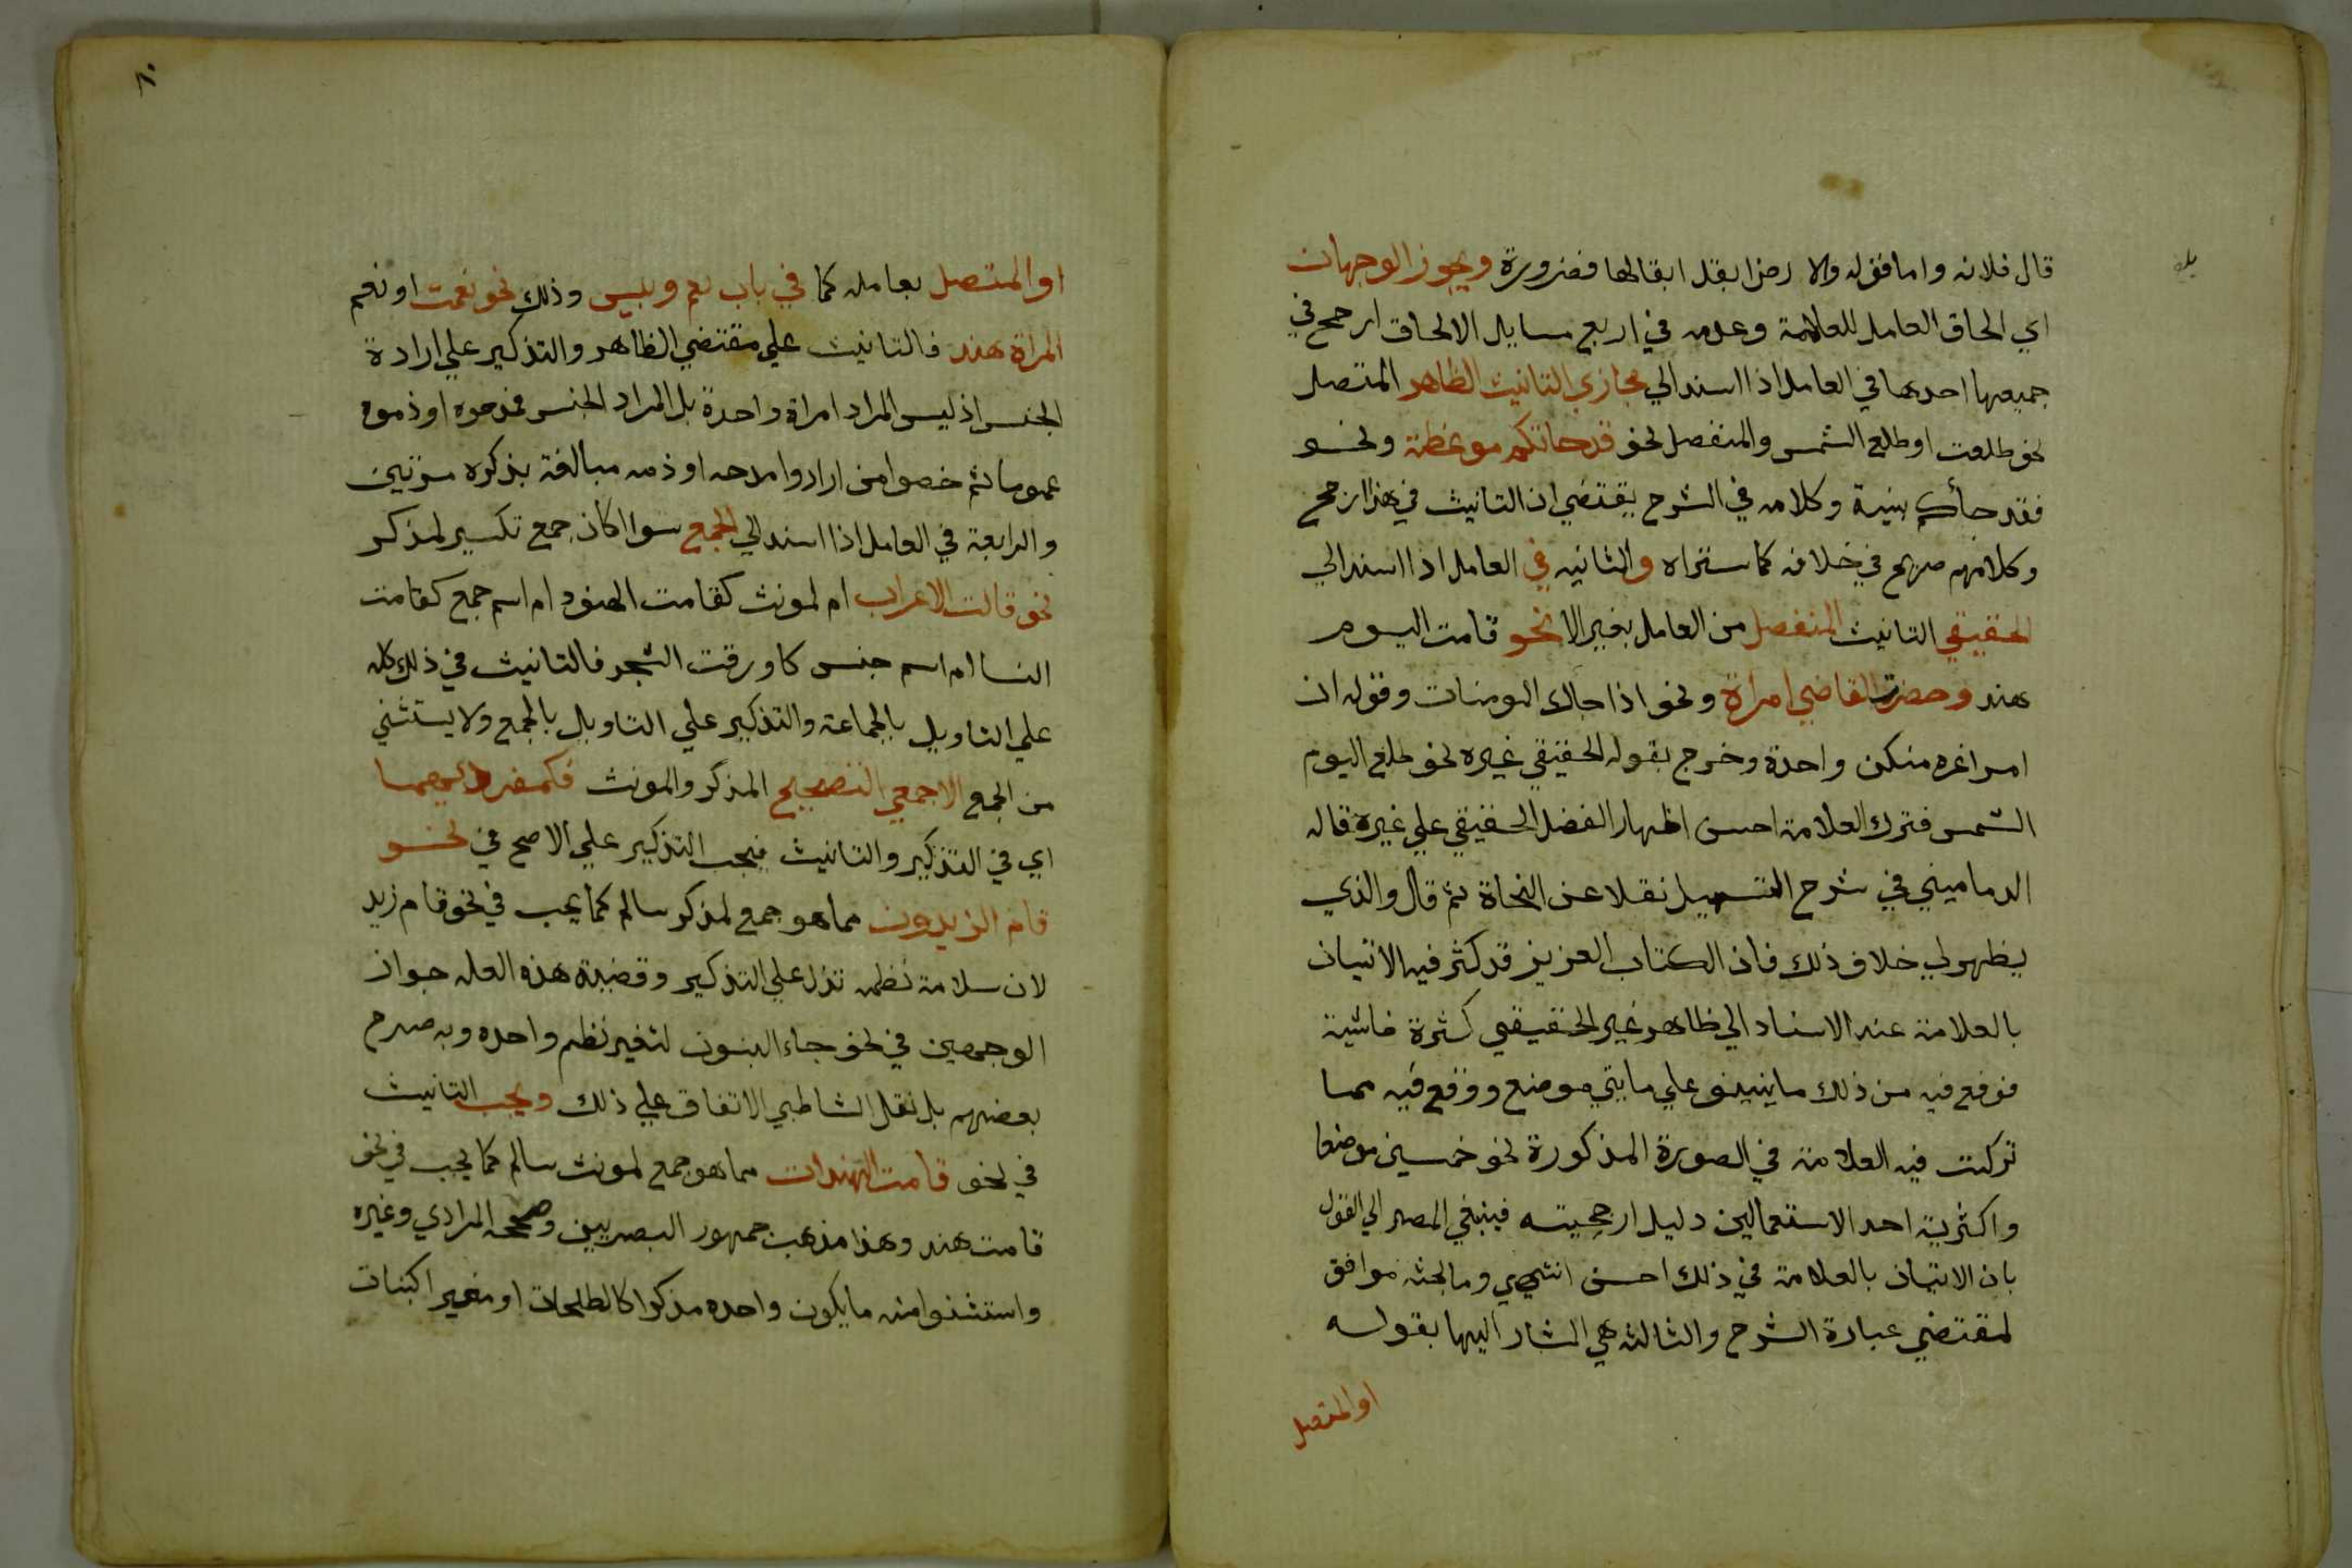 قال فلانه واما قوله ولا ارض ابقل ابقالها فضرورة ويجوز الوجهان
اي الحاق العامل للعلامة وعدمه في اربع مسايل الالحاق ارجح في
جميعها احدها في العامل اذا اسند الي مجازي التانيث الظاهر المتصل
نحو طلعت او طلع الشمس والمنفصل نحو قد جاتكم موعظة ونحو
فقد جأكم بينة وكلامه في الشرح يقتضي ان التانيث في هذا ارجح
وكلامهم صريح في خلافه كما ستراه والثانيه في العامل اذا اسند الي
الحقيقي التانيث المنفصل من العامل بغير الا نحو قامت اليوم
هند وحضرت القاضي امراة ونحو اذا جاك المومنات وقوله ان
امرا غره منكن واحدة وخرج بقوله الحقيقي غيره نحو طلع اليوم
الشمس فترك العلامة احسن اظهار الفضل الحقيقي علي غيره قاله
الدماميني في شرح التسهيل نقلا عن النحاة ثم قال والذي
يظهر لي خلاف ذلك فان الكتاب العزيز قد كثر فيه الاتيان
بالعلامة عند الاسناد الي ظاهر غير الحقيقي كثرة فاشية
فوقع فيه من ذلك ما ينيف علي مايتي موضع ووقع فيه مما
تركت فيه العلامة في الصورة المذكورة نحو خمسين موضعا
واكثرية احد الاستعمالين دليل ارجحيته فينبغي المصير الي القول
بان الاتيان بالعلامة في ذلك احسن انتهي وما بحثه موافق
لمقتضي عبارة الشرح والثالثه هي المشار اليها بقوله
او المتصل
٨٠
او المتصل بعامله كما في باب نعم وبيس وذلك نحو نعمت او نعم
المراة هند فالتانيث علي مقتضي الظاهر والتذكير علي ارادة
الجنس اذ ليس المراد امراة واحدة بل المراد الجنس فمدحوه او ذموه
عموما ثم خصوا من ارادوا مدحه او ذمه مبالغة بذكره مرتين
والرابعة في العامل اذا اسند الي الجمع سوا اكان جمع تكسير لمذكر
نحو قالت الاعراب ام لمونث كقامت الهنود ام اسم جمع كقامت
النسا ام اسم جنس كاورقت الشجر فالتانيث في ذلك كله
علي التاويل بالجماعة والتذكير علي التاويل بالجمع ولا يستثني
من الجمع الا جمعي التصحيح المذكر والمونث فكمفرديهما
اي في التذكير والتانيث فيجب التذكير علي الاصح في نحو
قام الزيدون مما هو جمع لمذكر سالم كما يجب في نحو قام زيد
لان سلامة نظمه تدل علي التذكير وقضية هذه العله جواز
الوجهين في نحو جاء البنون لتغير نظم واحده وبه صرح
بعضهم بل نقل الشاطبي الاتفاق علي ذلك ويجب التانيث
في نحو قامت الهندات مما هو جمع لمونث سالم كما يجب في نحو
قامت هند وهذا مذهب جمهور البصريين وصححه المرادي وغيره
واستثنوا منه ما يكون واحده مذكرا كالطلحات او مغير اكبنات